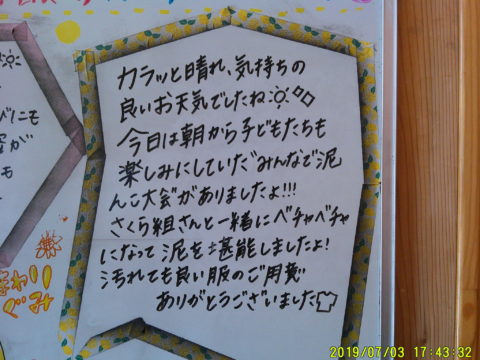 カラッと晴れ、気持ちの
良いお天気でしたね
今日は朝から子どもたちも
楽しみにしていたみんなで泥
んこ大会がありましたよ!!!
さくら組さんと一緒にベチャベチャ
になって泥を堪能しましたよ!
汚れても良い服のご用意
ありがとうございました
ぐみ
2019/07/03 17:43:32